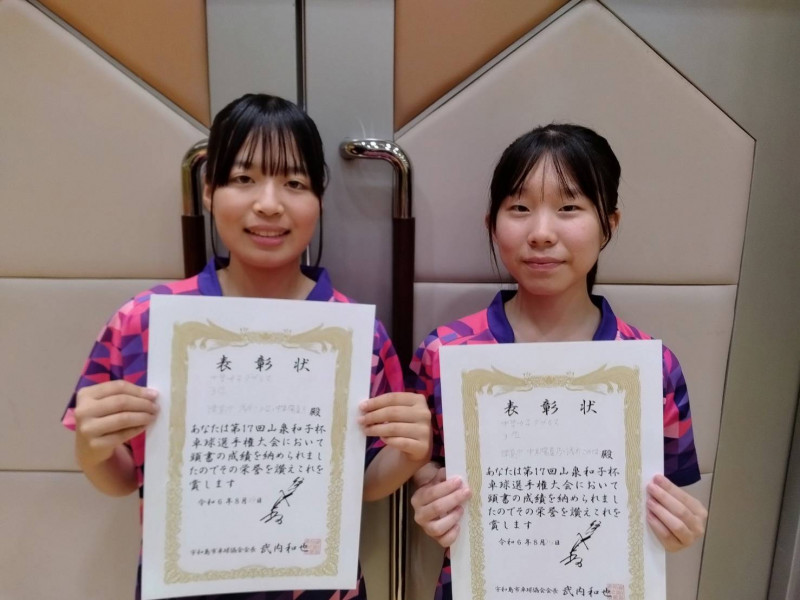 表彰状
殿
あなたは第17回山泉和子杯
卓球選手権大会において
頭書の成績を納められまし
たのでその栄誉を讃えこれを
賞します
令和6年8月 日
宇和島市卓球協会会長 武内和也
表彰状
殿
あなたは第17回山泉和子杯
卓球選手権大会において
頭書の成績を納められまし
たのでその栄誉を讃えこれを
賞します
令和6年8月 日
宇和島市卓球協会会長 武内和也